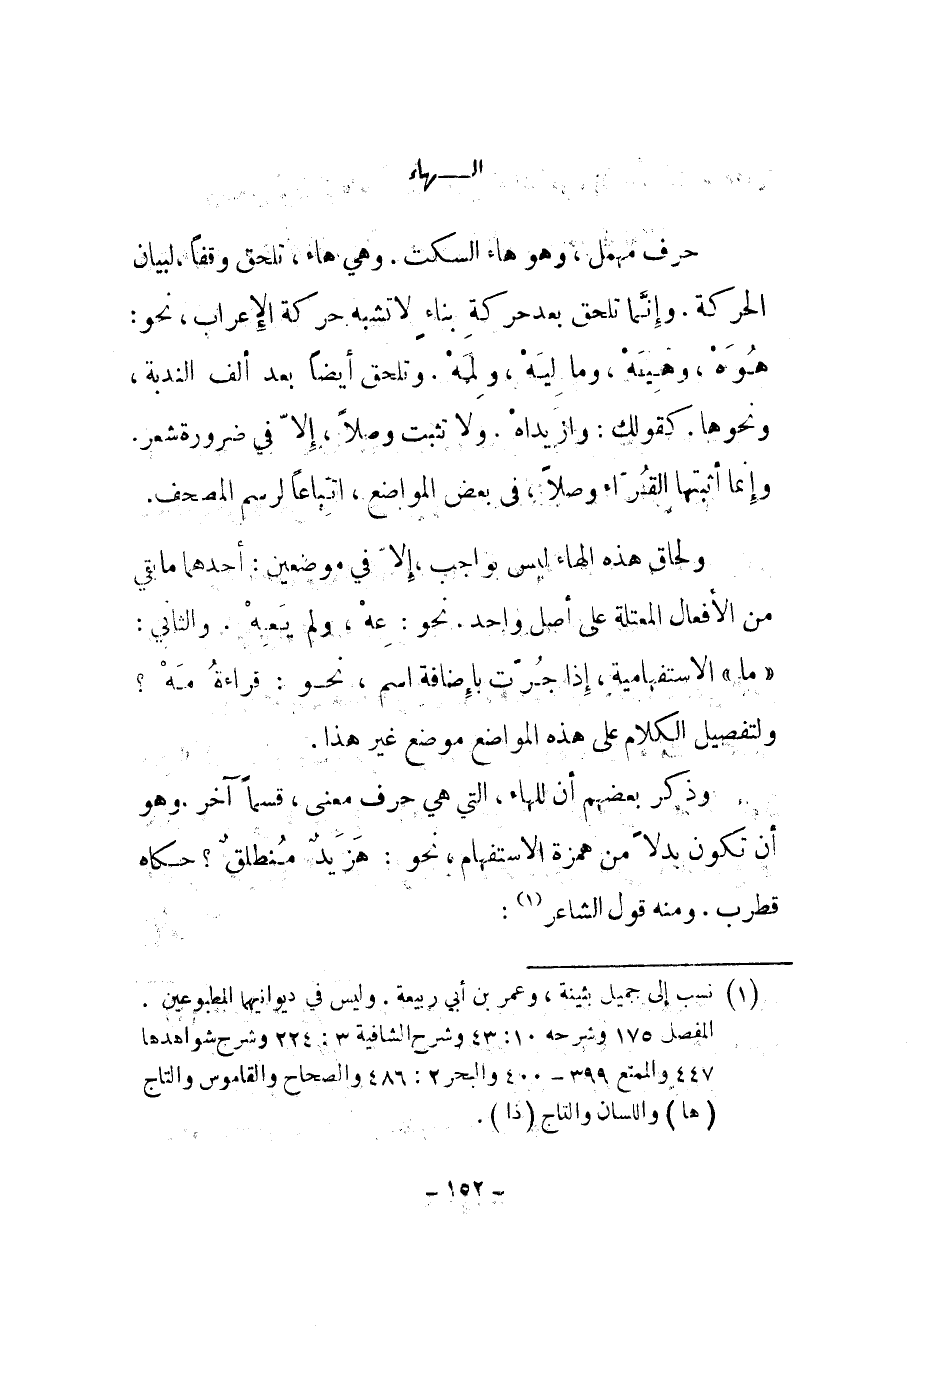 الـــهاء
حرف مهمل ، وهو هاء السكت . وهي هاء ، تلحق وقفاً ، لبيان
الحركة . وإنَّما تلحق بعد حركةِ بناءٍ لا تشبه حركة الإعراب ، نحو :
هُوَهْ ، وهِيَهْ ، وما لِيَهْ ، و لِمَهْ . وتلحق أيضاً بعد ألف الندبة ،
ونحوها . كقولك : وازيداهْ . ولا تثبت وصلاً ، إلاّ في ضرورة شعر .
وإنما أثبتها القُرّاء وصلاً ، في بعض المواضع ، اتّباعاً لرسم المصحف .
ولحاق هذه الهاء ليس بواجب ، إلاّ في موضعين : أحدهما ما بقي
من الأفعال المعتلة على أصل واحد . نحو : عِهْ ، ولم يَعِهْ . والثاني :
« ما » الاستفهامية ، إذا جُرّت بإضافة اسم ، نحـو : قراءةُ مَهْ ؟
ولتفصيل الكلام على هذه المواضع موضع غير هذا .
وذكر بعضهم أن للهاء ، التي هي حرف معنى ، قسماً آخر . وهو
أن تكون بدلاً من همزة الاستفهام ، نحو : هَزَيدٌ مُنطلقٌ ؟ حـكاه
قطرب . ومنه قول الشاعر (١) :
(١) نسب إلى جميل بثينة ، وعمر بن أبي ربيعة . وليس في ديوانيهما المطبوعين .
المفصل ١٧٥ وشرحه ١٠ : ٤٣ وشرح الشافية ٣ : ٢٢٤ وشرح شواهدها
٤٤٧ والممتع ٣٩٩ – ٤٠٠ والبحر ٢ : ٤٨٦ والصحاح والقاموس والتاج
( ها ) واللسان والتاج ( ذا ) .
– ١٥٢ –